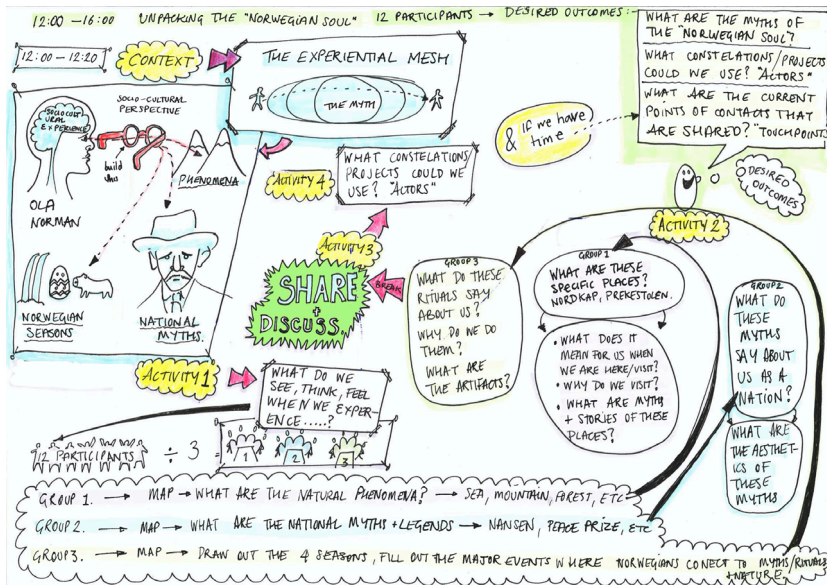 12:00 — 16:00 UNPACKING THE "NORWEGIAN SOUL" 12 PARTICIPANTS → DESIRED OUTCOMES:-
WHAT ARE THE MYTHS OF
THE "NORWEGIAN SOUL"?
WHAT CONSTELATIONS/PROJECTS
COULD WE USE? "ACTORS"
WHAT ARE THE CURRENT
POINTS OF CONTACTS THAT
ARE SHARED? "TOUCHPOINT
12:00 — 12:20
CONTEXT
THE EXPERIENTIAL MESH
THE MYTH
& if we have
time
DESIRED
OUTCOMES
SOCIO-CULTURAL
PERSPECTIVE
SOCIOCULT
URAL
EXPERIENCE
build
this
PHENOMENA
OLA
NORMAN
NORWEGIAN
SEASONS
NATIONAL
MYTHS.
ACTIVITY 4
WHAT CONSTELATIONS
PROJECTS COULD WE
USE? "ACTORS"
ACTIVITY 3
SHARE
+
DISCUSS.
BREAK
ACTIVITY 2
GROUP 3
WHAT DO THESE
RITUALS SAY
ABOUT US?
WHY DO WE DO
THEM?
WHAT ARE
THE ARTIFACTS?
GROUP 1
WHAT ARE THESE
SPECIFIC PLACES?
NORDKAP, PREKESTOLEN.
• WHAT DOES IT
MEAN FOR US WHEN
WE ARE HERE/VISIT?
• WHY DO WE VISIT?
• WHAT ARE MYTHS
+ STORIES OF THESE
PLACES?
GROUP 2
WHAT DO
THESE
MYTHS
SAY ABOUT
US AS A
NATION?
WHAT ARE
THE AESTHET-
ICS OF
THESE
MYTHS
ACTIVITY 1
WHAT DO WE
SEE, THINK, FEEL
WHEN WE EXPER-
IENCE.....?
12 PARTICIPANTS ÷ 3 =
1 2 3
GROUP 1. → MAP → WHAT ARE THE NATURAL PHENOMENA? → SEA, MOUNTAIN, FOREST, ETC
GROUP 2. → MAP → WHAT ARE THE NATIONAL MYTHS + LEGENDS → NANSEN, PEACE PRIZE, ETC
GROUP 3. → MAP → DRAW OUT THE 4 SEASONS, FILL OUT THE MAJOR EVENTS WHERE NORWEGIANS CONECT TO MYTHS/RITUALS
+NATURE.